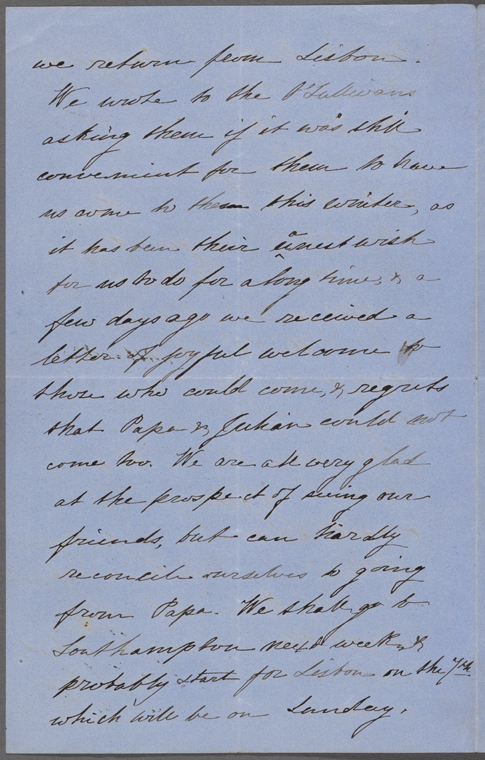 we return from Lisbon.
We wrote to the O'Sullivans
asking them if it was still
convenient for them to have
us come to them this winter, as
it has been their earnest wish
for us to do for a long time, & a
few days ago we received a
letter of joyful welcome to
those who could come, & regrets
that Papa & Julian could not
come too. We are all very glad
at the prospect of seeing our
friends, but can hardly
reconcile ourselves to going
from Papa. We shall go to
Southampton next week, &
probably start for Lisbon on the 7th.
which will be on Sunday.